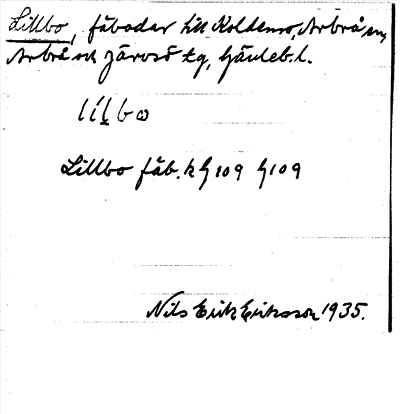 Lillbo, fäbodar till Koldemo, Arbrå sn,
Arbrå och Järvsö tg, Gävleb. l.
líl̠bω
Lillbo fäb. k G 109 G 109
Nils Erik Eriksson 1935.